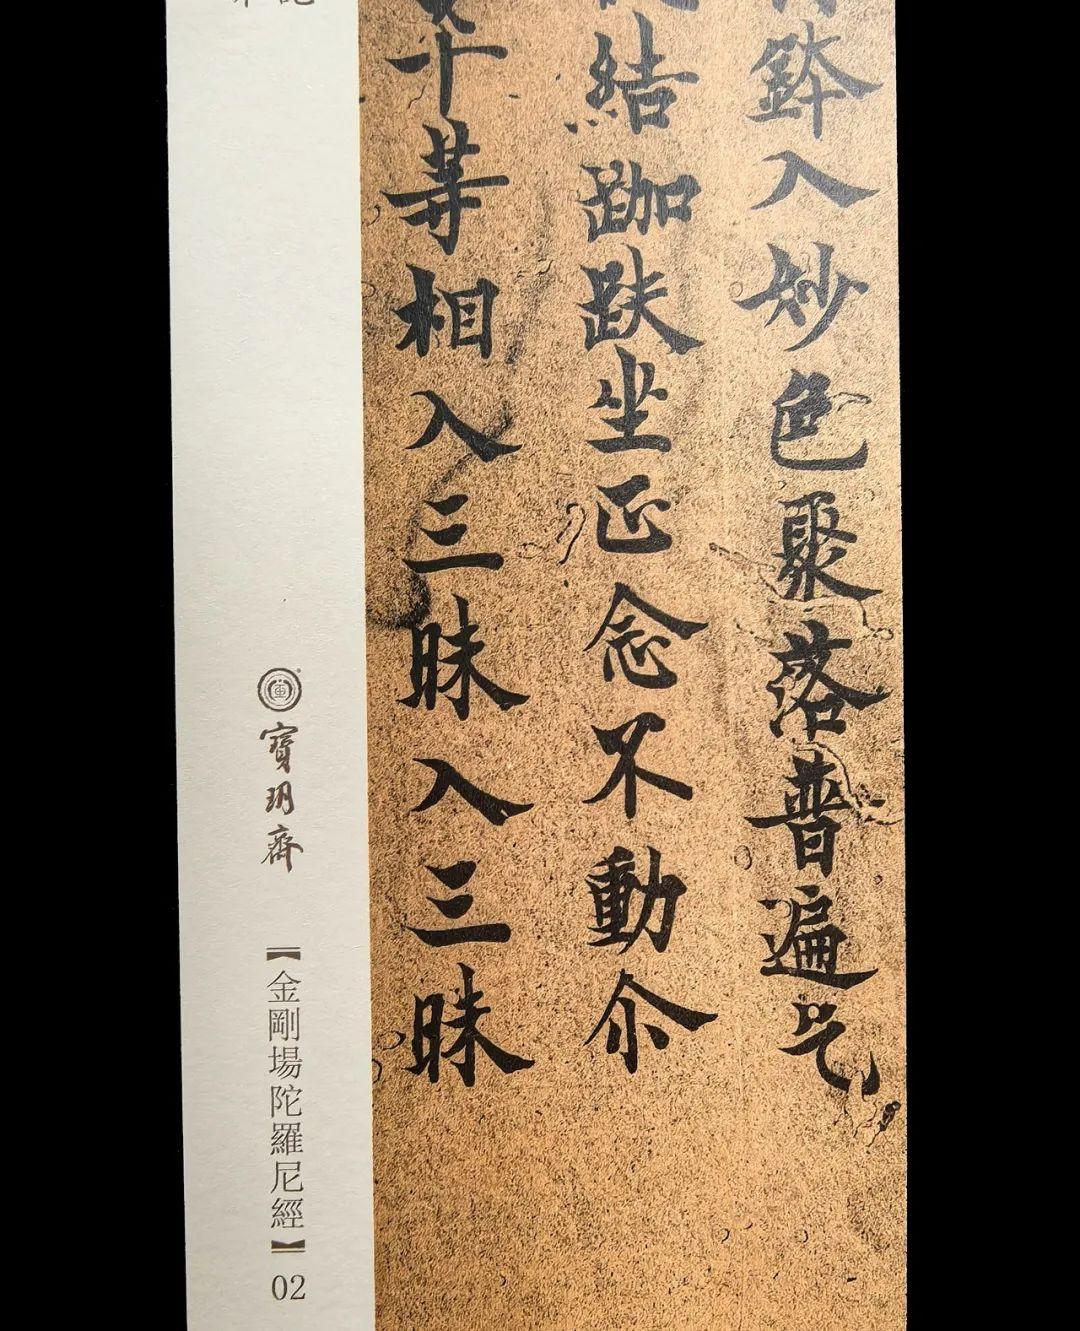 鉢入妙色聚落普遍乞
結跏趺坐正念不動尒
平等相入三昧入三昧
寶玥齋
【金剛場陀羅尼經】02